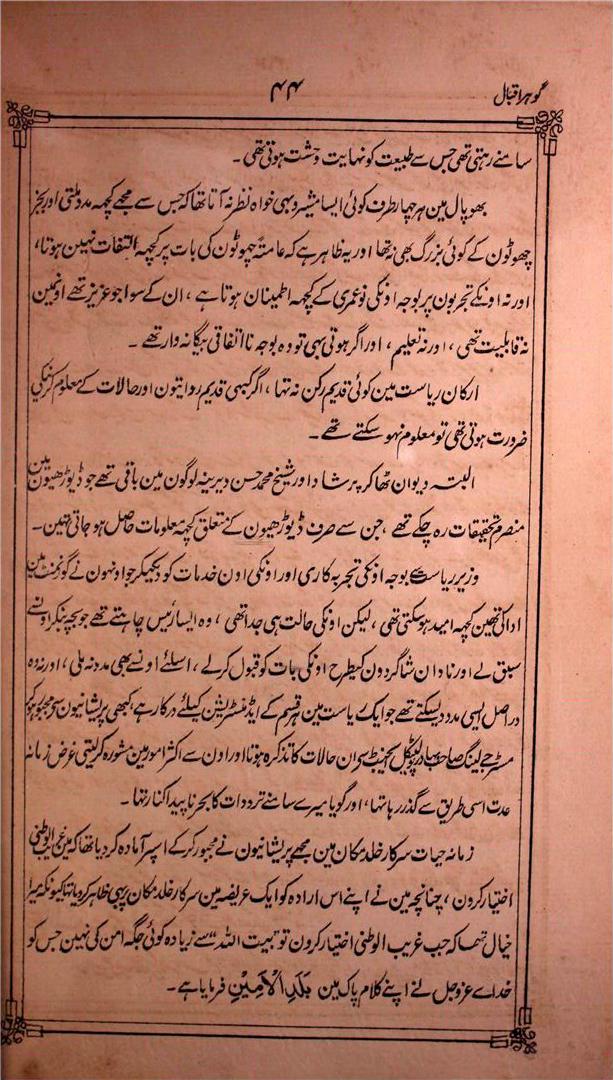 گوہر اقبال
۴۴
سامنے رہتی تھی جس سے طبیعت کو نہایت وحشت ہوتی تھی۔
بھوپال مین ہر چہار طرف کوئی ایسا مشیر و بہی خواہ نظر نہ آتا تھا کہ جس سے مجھے کچہہ مدد ملتی اور بجز
چھوٹون کے کوئی بزرگ بھی نہ تھا اور یہ ظاہر ہے کہ عامتہً چھوٹون کی بات پر کچہہ التفات نہین ہوتا،
اور نہ اونکے تجربون پر بوجہ اونکی نوعمری کے کچہہ اطمینان ہوتا ہے، ان کے سوا جو عزیز تھے اونمین
نہ قابلیت تھی، اور نہ تعلیم، اور اگر ہوتی بہی تو وہ بوجہ نااتفاقی بیگانہ وار تھے۔
ارکان ریاست مین کوئی قدیم رکن نہ تہا، اگر کبہی قدیم روایتون اور حالات کے معلوم کرنیکی
ضرورت ہوتی تھی تو معلوم نہو سکتے تھے۔
البتہ دیوان ٹھاکر پرشاد اور شیخ محمد حسن دیرینہ لوگون مین باقی تھے جو ڈیوڑھیون مین
منصرم تحقیقات رہ چکے تھے، جن سے صرف ڈیوڑھیون کے متعلق کچہہ معلومات حاصل ہو جاتی تہین۔
وزیر ریاست سے بوجہ اونکی تجربہ کاری اور اونکی اون خدمات کو دیکہیکر جو اونہون نے گورنمنٹ مین
ادا کی تھین کچہہ امید ہو سکتی تھی، لیکن اونکی حالت ہی جدا تھی، وہ ایسا رئیس چاہتے تھے جو بچہ بنکر اونسے
سبق لے اور نادان شاگردون کیطرح اونکی بات کو قبول کر لے، اسلئے اونسے بھی مدد نہ ملی، اور نہ وہ
در اصل ایسی مدد دیسکتے تھے جو ایک ریاست مین ہر قسم کے ایڈمنسٹریشن کیلئے درکار ہے، کبھی پریشانیون سے مجبور ہو کر
مسٹر جے لینگ صاحب بہادر پولیٹیکل ایجنٹ سے ان حالات کا تذکرہ ہوتا اور اون سے اکثر امور مین مشورہ کر لیتی غرض زمانہ
عدت اسی طریق سے گذر رہا تہا، اور گویا میرے سامنے ترددات کا بحر ناپیدا کنار تہا۔
زمانہ حیات سرکار خلد مکان مین مجھے پریشانیون نے مجبور کر کے اسپر آمادہ کر دیا تھا کہ مین غریب الوطنی
اختیار کرون، چنانچہ مین نے اپنے اس ارادہ کو ایک عریضہ مین سرکار خلد مکان پر بہی ظاہر کر دیا تہا کیونکہ میرا
خیال تہا کہ جب غریب الوطنی اختیار کرون تو "بیت اللہ" سے زیادہ کوئی جگہ امن کی نہین جس کو
خداے عزوجل نے اپنے کلام پاک مین بَلَدِ الْاَمِیْنِ فرمایا ہے۔